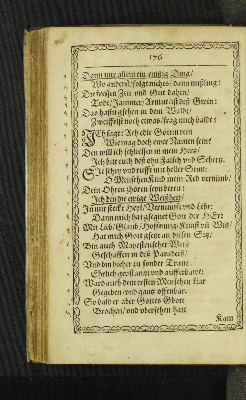 176
Dann nur allein ein einzig Ding/
Wo anderst/folgt michs/dann mißling:
Die fressen Zeit und Gut dahin/
Todt/Jammer/Armut ist deß Gwin:
Das hastu gsehen in dem Waldt/
Zweiffelst noch etwas/frag mich baldt:
ICh sagt: Ich edle Göttin rein
Wie mag doch ewer Namen seine
Den will ich schliessen in mein Hertz/
Ich bitt euch deß ohn Falsch und Schertz.
Sie schry und rufft mit heller Stim:
O MenschenKind mein Red vernimb/
Dein Ohren hören seyn bereit:
Ich bin die ewige Weißheit/
In mir steckt Heyl/Vernunfft und Lehr:
Dann mich hat gsegnet Gott der HErr
Mit Lieb/Glaub/Hoffnung/Kunst und Witz/
Hat mich Gott gsetzt an diesen Sitz/
Bin auch Mayestetischer Weiß
Geschaffen in deß Paradeiß/
Und bin bißher zu sonder Traur
Ehrlich gepflantzt und aufferbawt:
Ward auch dem ersten Menschen klar
Gegeben und gantz offenbar.
So bald er aber Gottes Gbott
Brochen/und übersehen hatt
Kam